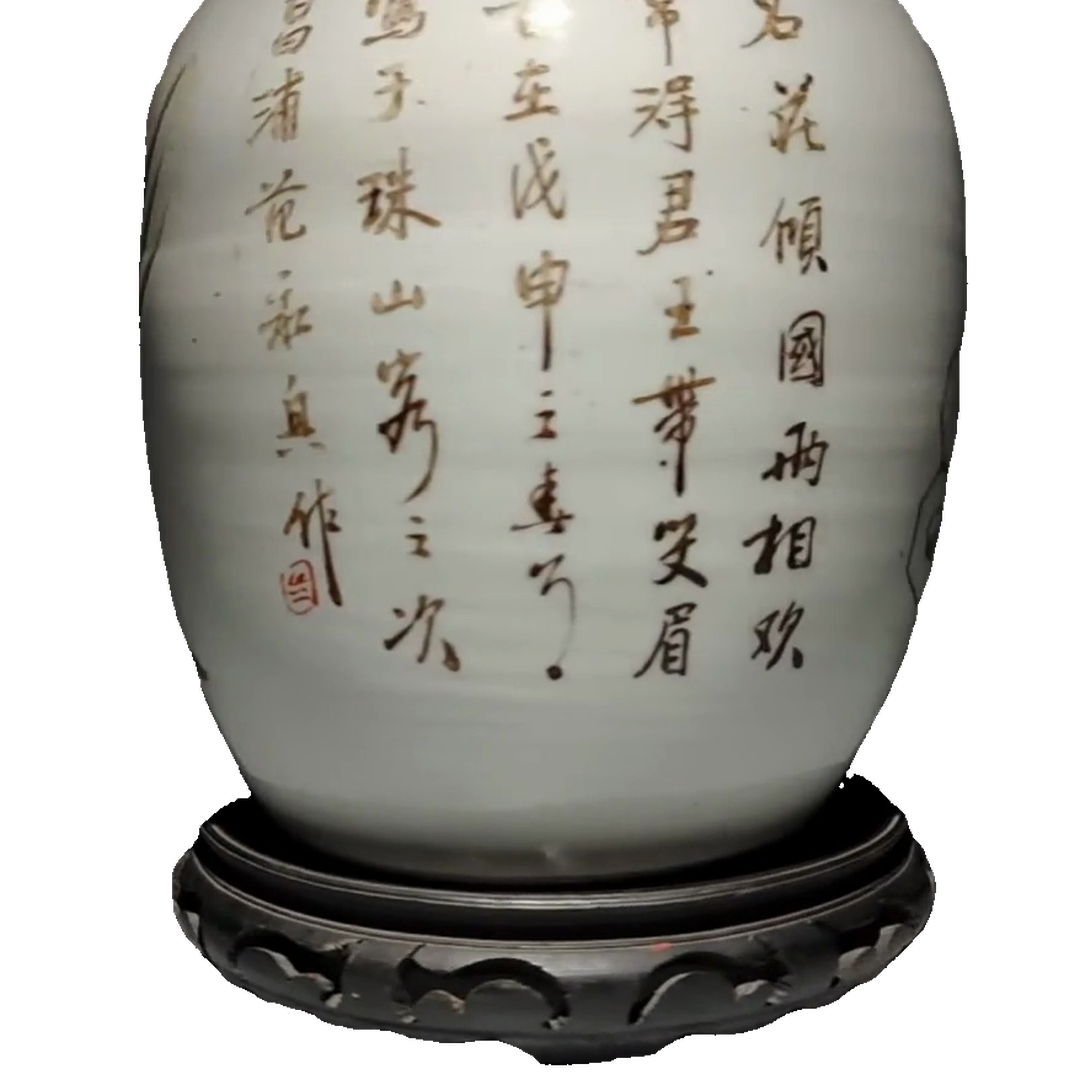 名花傾國兩相欢
常得君王帶笑眉
在戊申之春月
寫于珠山客之次
昌浦范永真作